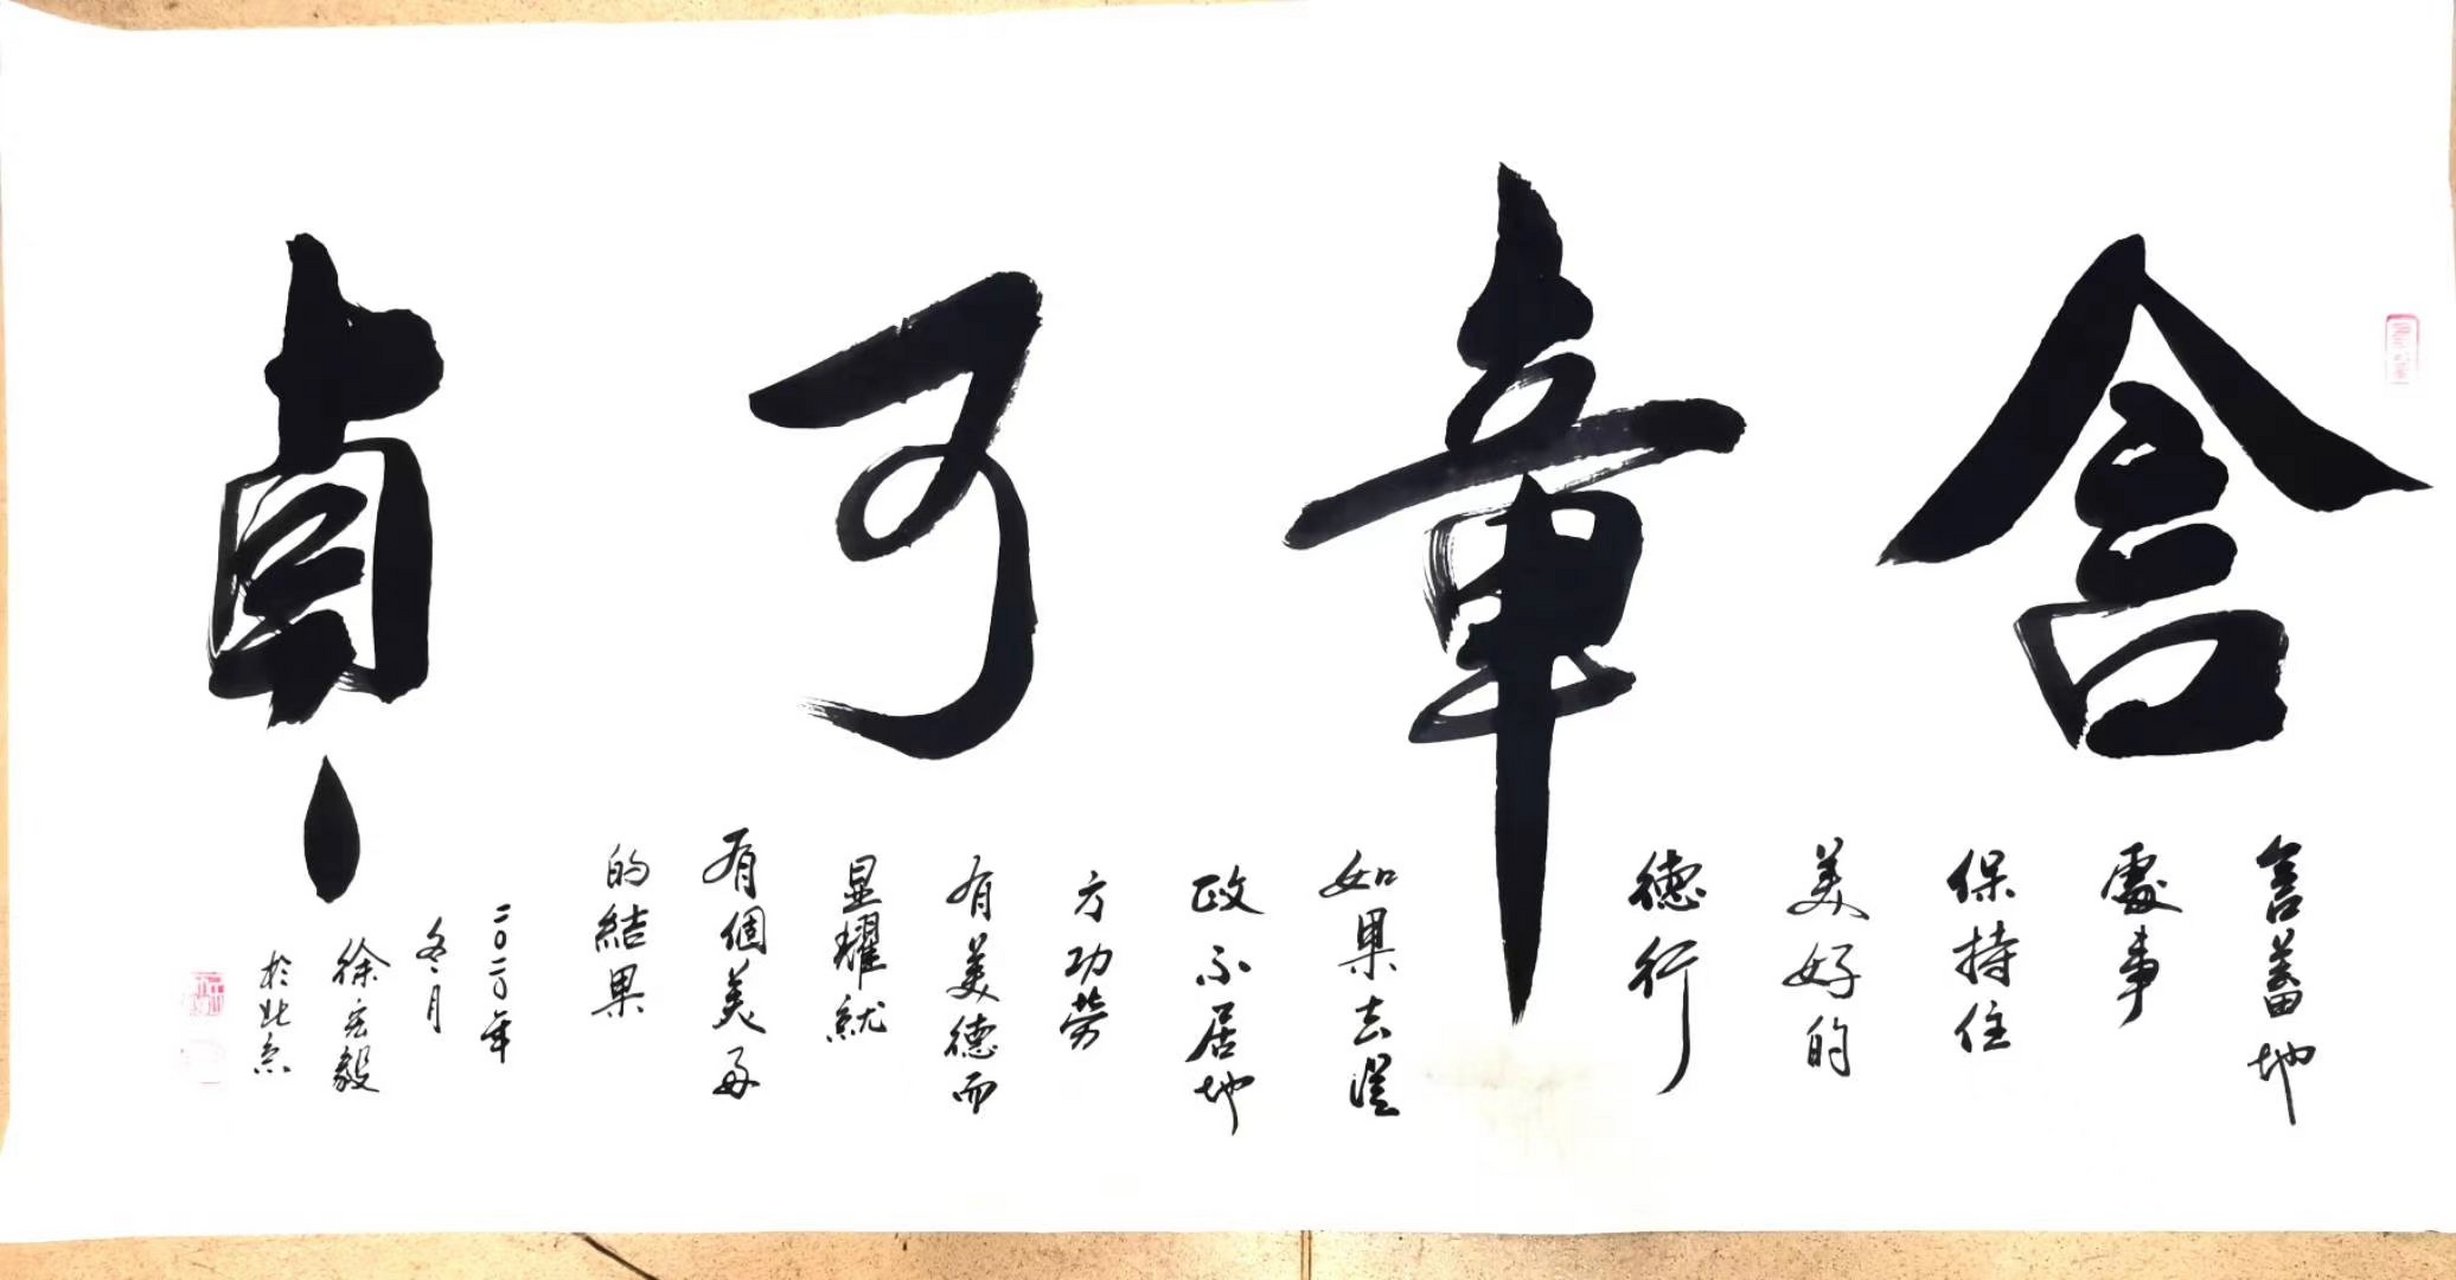 含章可貞
含蓄地
處事
保持住
美好的
德行
如果去從
政不居地
方功勞
有美德而
显耀就
有個美好
的結果
二〇二〇年
冬月
徐宏毅
於北京